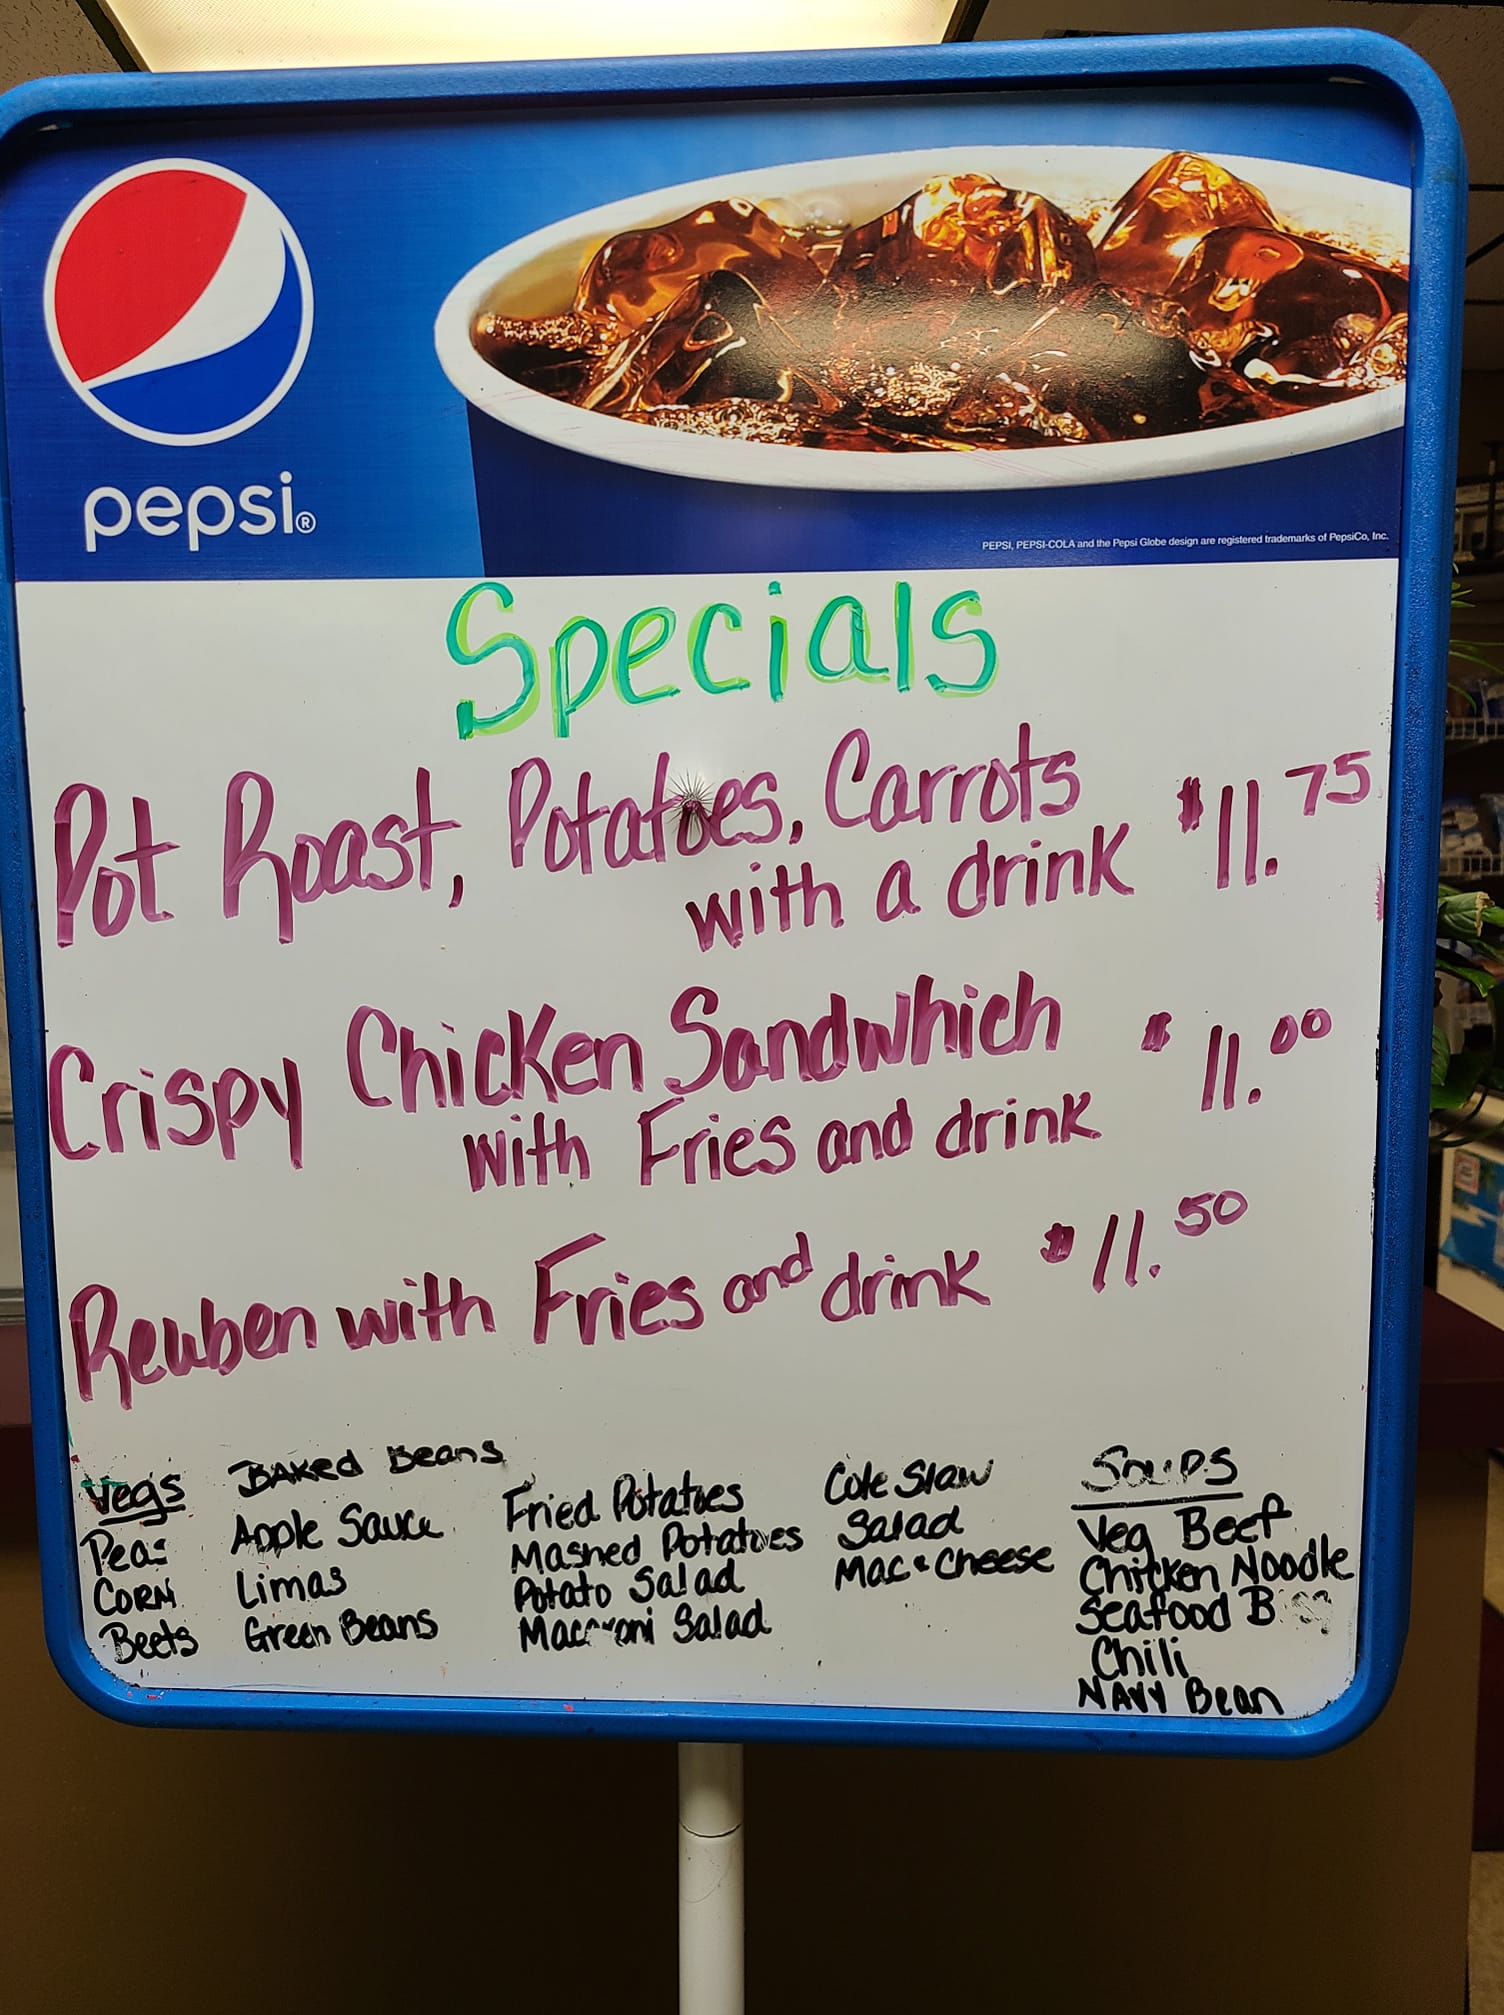 pepsi®
PEPSI, PEPSI-COLA and the Pepsi Globe design are registered trademarks of PepsiCo, Inc.
Specials
Pot Roast, Potatoes, Carrots
with a drink $11.75
Crispy Chicken Sandwhich $11.00
with Fries and drink
Reuben with Fries and drink $11.50
Vegs
Peas
Corn
Beets
Baked Beans
Apple Sauce
Limas
Green Beans
Fried Potatoes
Mashed Potatoes
Potato Salad
Macaroni Salad
Cole Slaw
Salad
Mac & Cheese
Soups
Veg Beef
Chicken Noodle
Seafood
Chili
Navy Bean